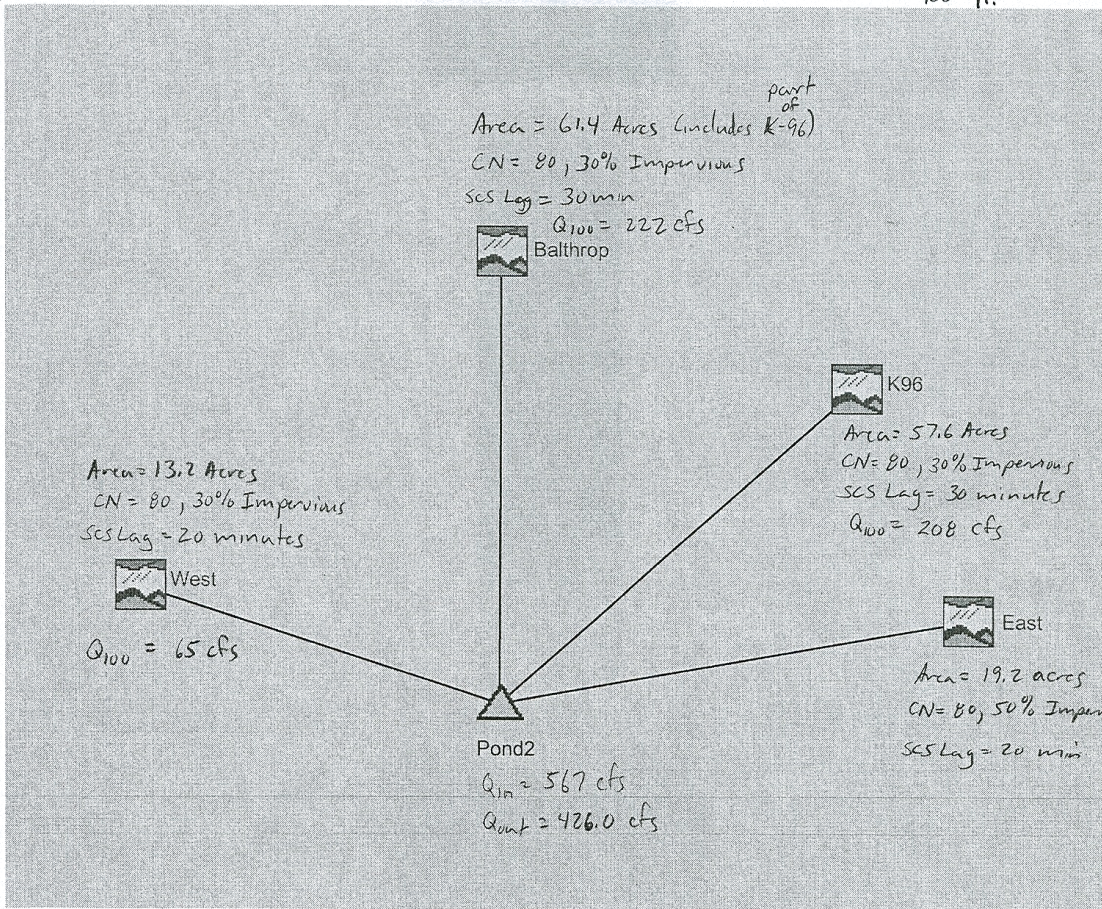 part
of
Area = 61.4 Acres (includes K-96)
CN = 80, 30% Impervious
SCS Lag = 30 min
Q100 = 222 cfs
Balthrop
K96
Area = 57.6 Acres
CN = 80, 30% Impervious
SCS Lag = 30 minutes
Q100 = 208 cfs
Area = 13.2 Acres
CN = 80, 30% Impervious
SCS Lag = 20 minutes
West
Q100 = 65 cfs
East
Area = 19.2 acres
CN = 80, 50% Imper
SCS Lag = 20 min
Pond2
Qin = 567 cfs
Qout = 426.0 cfs